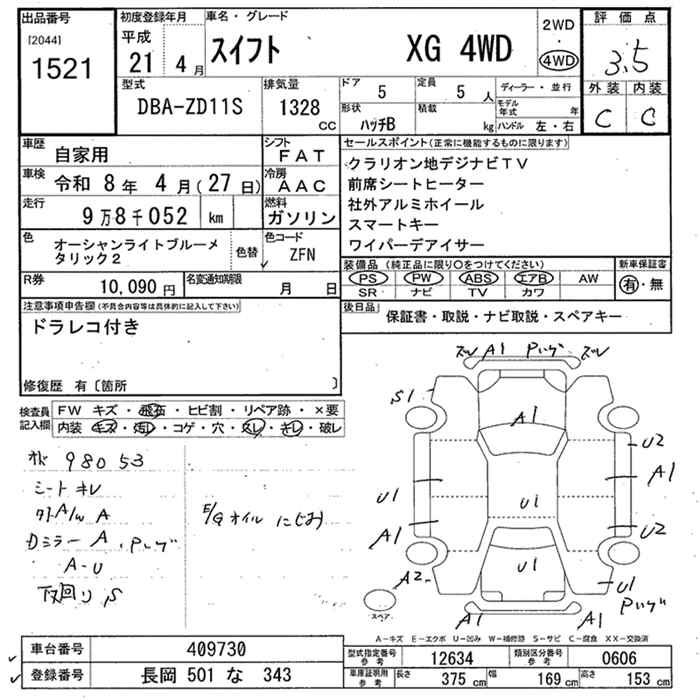 出品番号
[2044]
1521
初度登録年月
平成
21年 4月
車名・グレード
スイフト XG 4WD
2WD
・
4WD
評価点
3.5
外装 内装
C C
型式
DBA-ZD11S
排気量
1328
CC
ドア
5
定員
5 人
形状
ハッチB
積載
kg
ディーラー・並行
モデル年式 年
ハンドル 左・右
車歴
自家用
シフト
FAT
車検
令和 8年 4月(27日)
冷房
AAC
走行
9万8千052 km
燃料
ガソリン
色
オーシャンライトブルーメ
タリック2
色替
色コード
ZFN
R券
10,090円
名変通知期限
月 日
セールスポイント(正常に機能するものに限ります)
クラリオン地デジナビTV
前席シートヒーター
社外アルミホイール
スマートキー
ワイパーデアイサー
装備品(純正品に限り○をつけてください)
新車保証書
PS PW ABS エアB AW
SR ナビ TV カワ
有・無
後日品
保証書・取説・ナビ取説・スペアキー
注意事項申告欄(不具合内容等は具体的に記入して下さい)
ドラレコ付き
修復歴 有〔箇所 〕
検査員
記入欄
FW キズ・飛石・ヒビ割・リペア跡・×要
内装 キズ・汚レ・コゲ・穴・スレ・キレ・破レ
98053
シート キレ
A/W A
Dミラー A
A-U
下回り S
E/Gオイル にじみ
ズレ A1 ズレ
S1
A1
U2
A1
U1
U1
A1
U2
A2
U1
U1
A1
A1
スペア
A-キズ E-エクボ U-凹み W-補修跡 S-サビ C-腐食 XX-交換済
車台番号
409730
登録番号
長岡 501 な 343
型式指定番号
参考
12634
類別区分番号
参考
0606
車庫証明用
参考
長さ 375 cm
幅 169 cm
高さ 153 cm